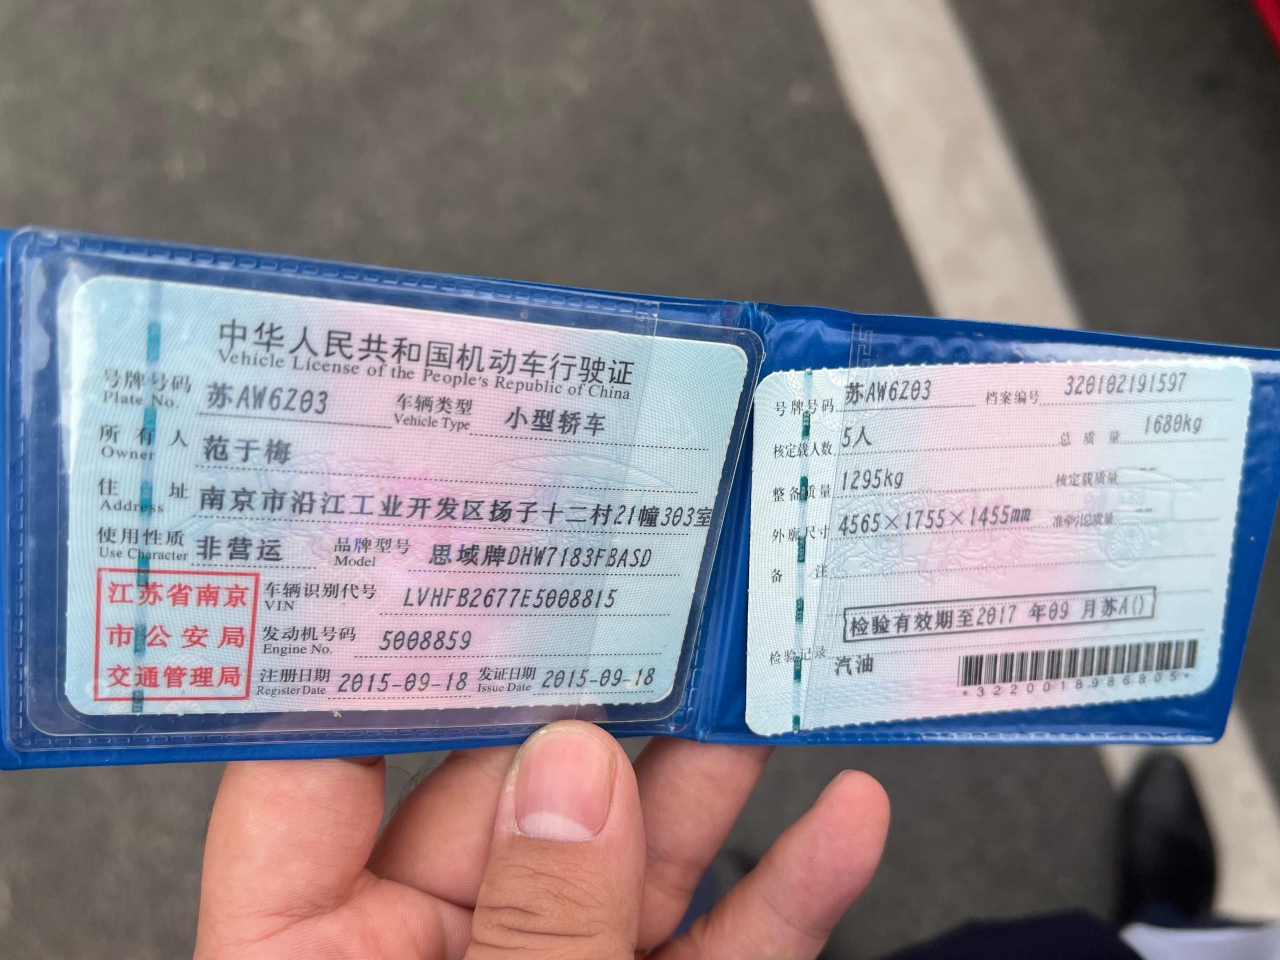 中华人民共和国机动车行驶证
Vehicle License of the People's Republic of China
号牌号码 苏AW6Z03 车辆类型 小型轿车
Plate No. Vehicle Type
所有人 范于梅
Owner
住址 南京市沿江工业开发区扬子十二村21幢303室
Address
使用性质 非营运 品牌型号 思域牌DHW7183FBASD
Use Character Model
江苏省南京
市公安局
交通管理局
车辆识别代号 LVHFB2677E5008815
VIN
发动机号码 5008859
Engine No.
注册日期 2015-09-18 发证日期 2015-09-18
Register Date Issue Date
号牌号码 苏AW6Z03 档案编号 320102191597
核定载人数 5人 总质量 1680kg
整备质量 1295kg 核定载质量 --
外廓尺寸 4565×1755×1455mm 准牵引总质量 --
备注
检验有效期至2017 年09 月苏A()
检验记录 汽油
*3220018986805*